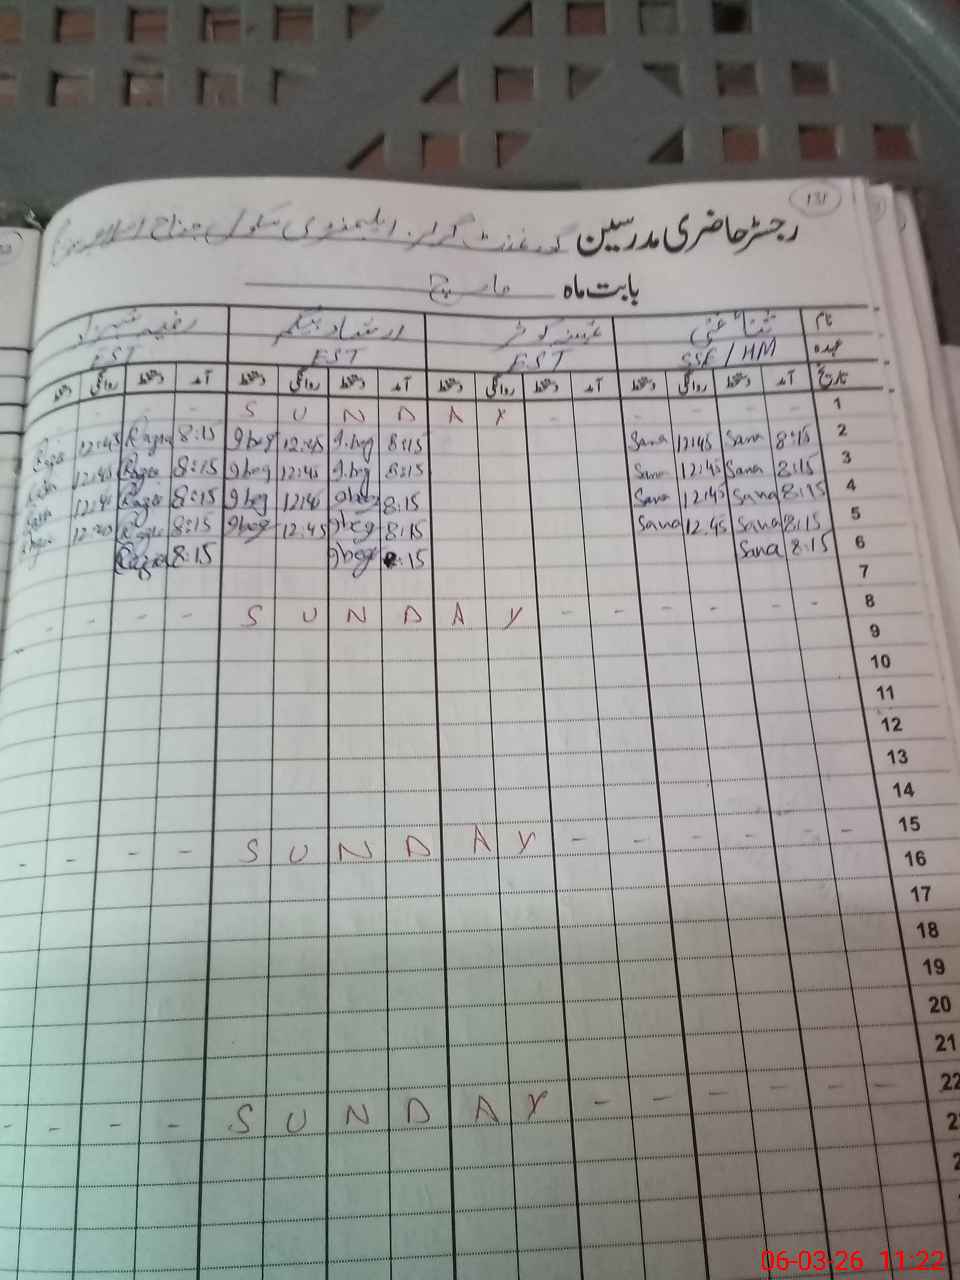 131
رجسٹر حاضری مدرسین گورنمنٹ گرلز ایلیمنٹری سکول جناح اسلامیہ
بابت ماہ مارچ
نام ثناء غنی ارشاد بیگم
عہدہ SSE/HM EST EST EST
تاریخ آمد دستخط روانگی دستخط آمد دستخط روانگی دستخط آمد دستخط روانگی دستخط آمد دستخط روانگی دستخط
1 - - - - S U N D A Y - - - -
2 8:15 Sana 12:45 Sana 8:15 9.beg 12:45 9beg 8:15 Razia 12:45 Razia
3 8:15 Sana 12:45 Sana 8:15 9.beg 12:45 9beg 8:15 Razia 12:45
4 8:15 Sana 12:45 Sana 8:15 9beg 9beg 8:15 Razia
5 8:15 Sana 12.45 Sana 8:15 9beg 12.45 9beg 8:15 Razia
6 8:15 Sana 9beg 8:15 Razia
7
8 - - - - - - S U N D A Y - - - -
9
10
11
12
13
14
15 - - - - - - S U N D A Y - - - -
16
17
18
19
20
21
22 - - - - - - - S U N D A Y - - - -
06-03-26 11:22